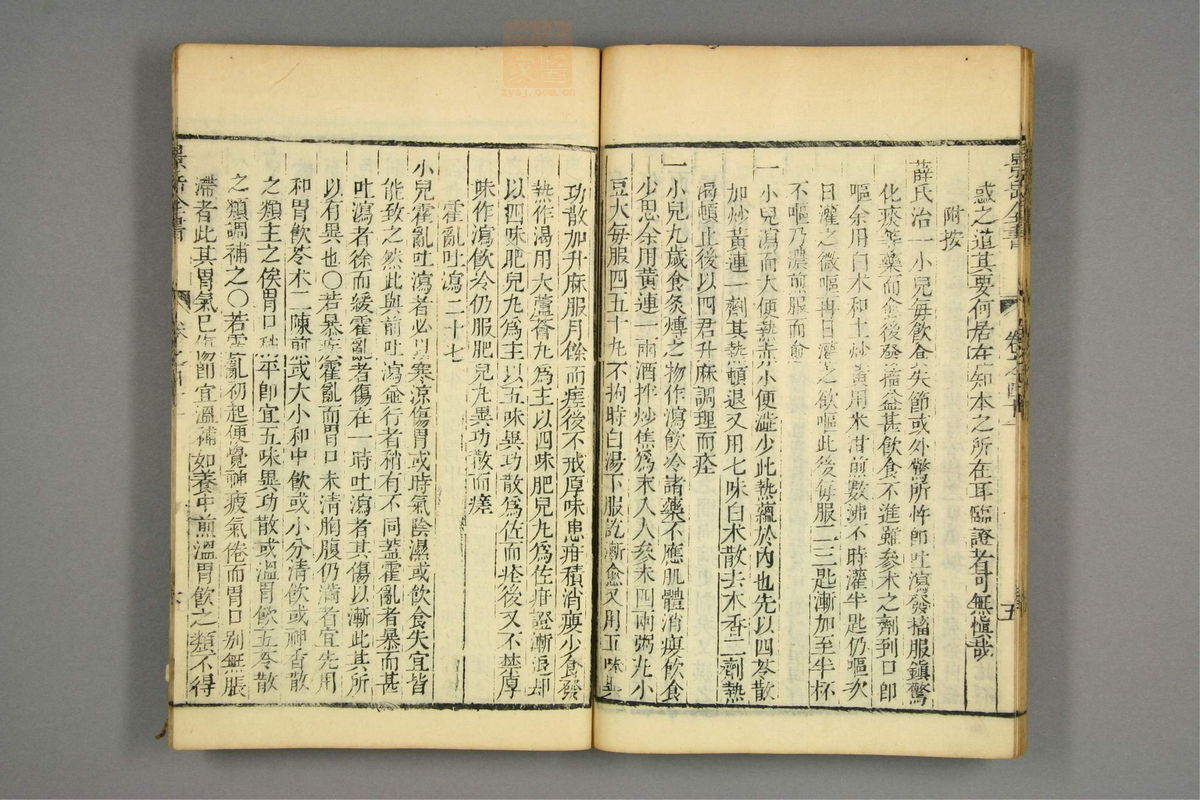 惑之道其要何居在知本之所在耳臨證者可無愼哉
附按
薛氏治一小兒每飲食失節或外驚所忤卽吐瀉發搐服鎮驚
化痰等藥而愈後發搐益甚飲食不進雖參术之劑到口卽
嘔余用白术和土炒黃用米泔煎數沸不時灌半匙仍嘔次
日灌之微嘔再日灌之欲嘔此後每服二三匙漸加至半杯
不嘔乃濃煎服而愈
一小兒瀉而大便熱赤小便澁少此熱蘊於內也先以四苓散
加炒黃連一劑其熱頓退又用七味白术散去木香二劑熱
渴頓止後以四君升麻調理而痊
一小兒九歲食炙煿之物作瀉飲冷諸藥不應肌體消瘦飲食
少思余用黃連一兩酒拌炒焦爲末入人參末四兩粥丸小
豆大每服四五十丸不拘時白湯下服訖漸愈又用五味異
功散加升麻服月餘而瘥後不戒厚味患疳積消瘦少食發
熱作渴用大蘆薈丸爲主以四味肥兒丸爲佐疳證漸退却
以四味肥兒丸爲主以五味異功散爲佐而痊後又不禁厚
味作瀉飲冷仍服肥兒丸異功散而瘥
霍亂吐瀉二十七
小兒霍亂吐瀉者必以寒涼傷胃或時氣陰濕或飲食失宜皆
能致之然此與前吐瀉並行者稍有不同蓋霍亂者暴而甚
吐瀉者徐而緩霍亂者傷在一時吐瀉者其傷以漸此其所
以有異也〇若暴疾霍亂而胃口未淸胸腹仍滯者宜先用
和胃飲苓术二陳煎或大小和中飲或小分淸飲或神香散
之類主之俟胃口稍平卽宜五味異功散或溫胃飲五苓散
之類調補之〇若霍亂初起便覺神疲氣倦而胃口別無脹
滯者此其胃氣已傷卽宜溫補如養中煎溫胃飲之類不得
景岳全書
景岳全書
五
zysj.com.cn